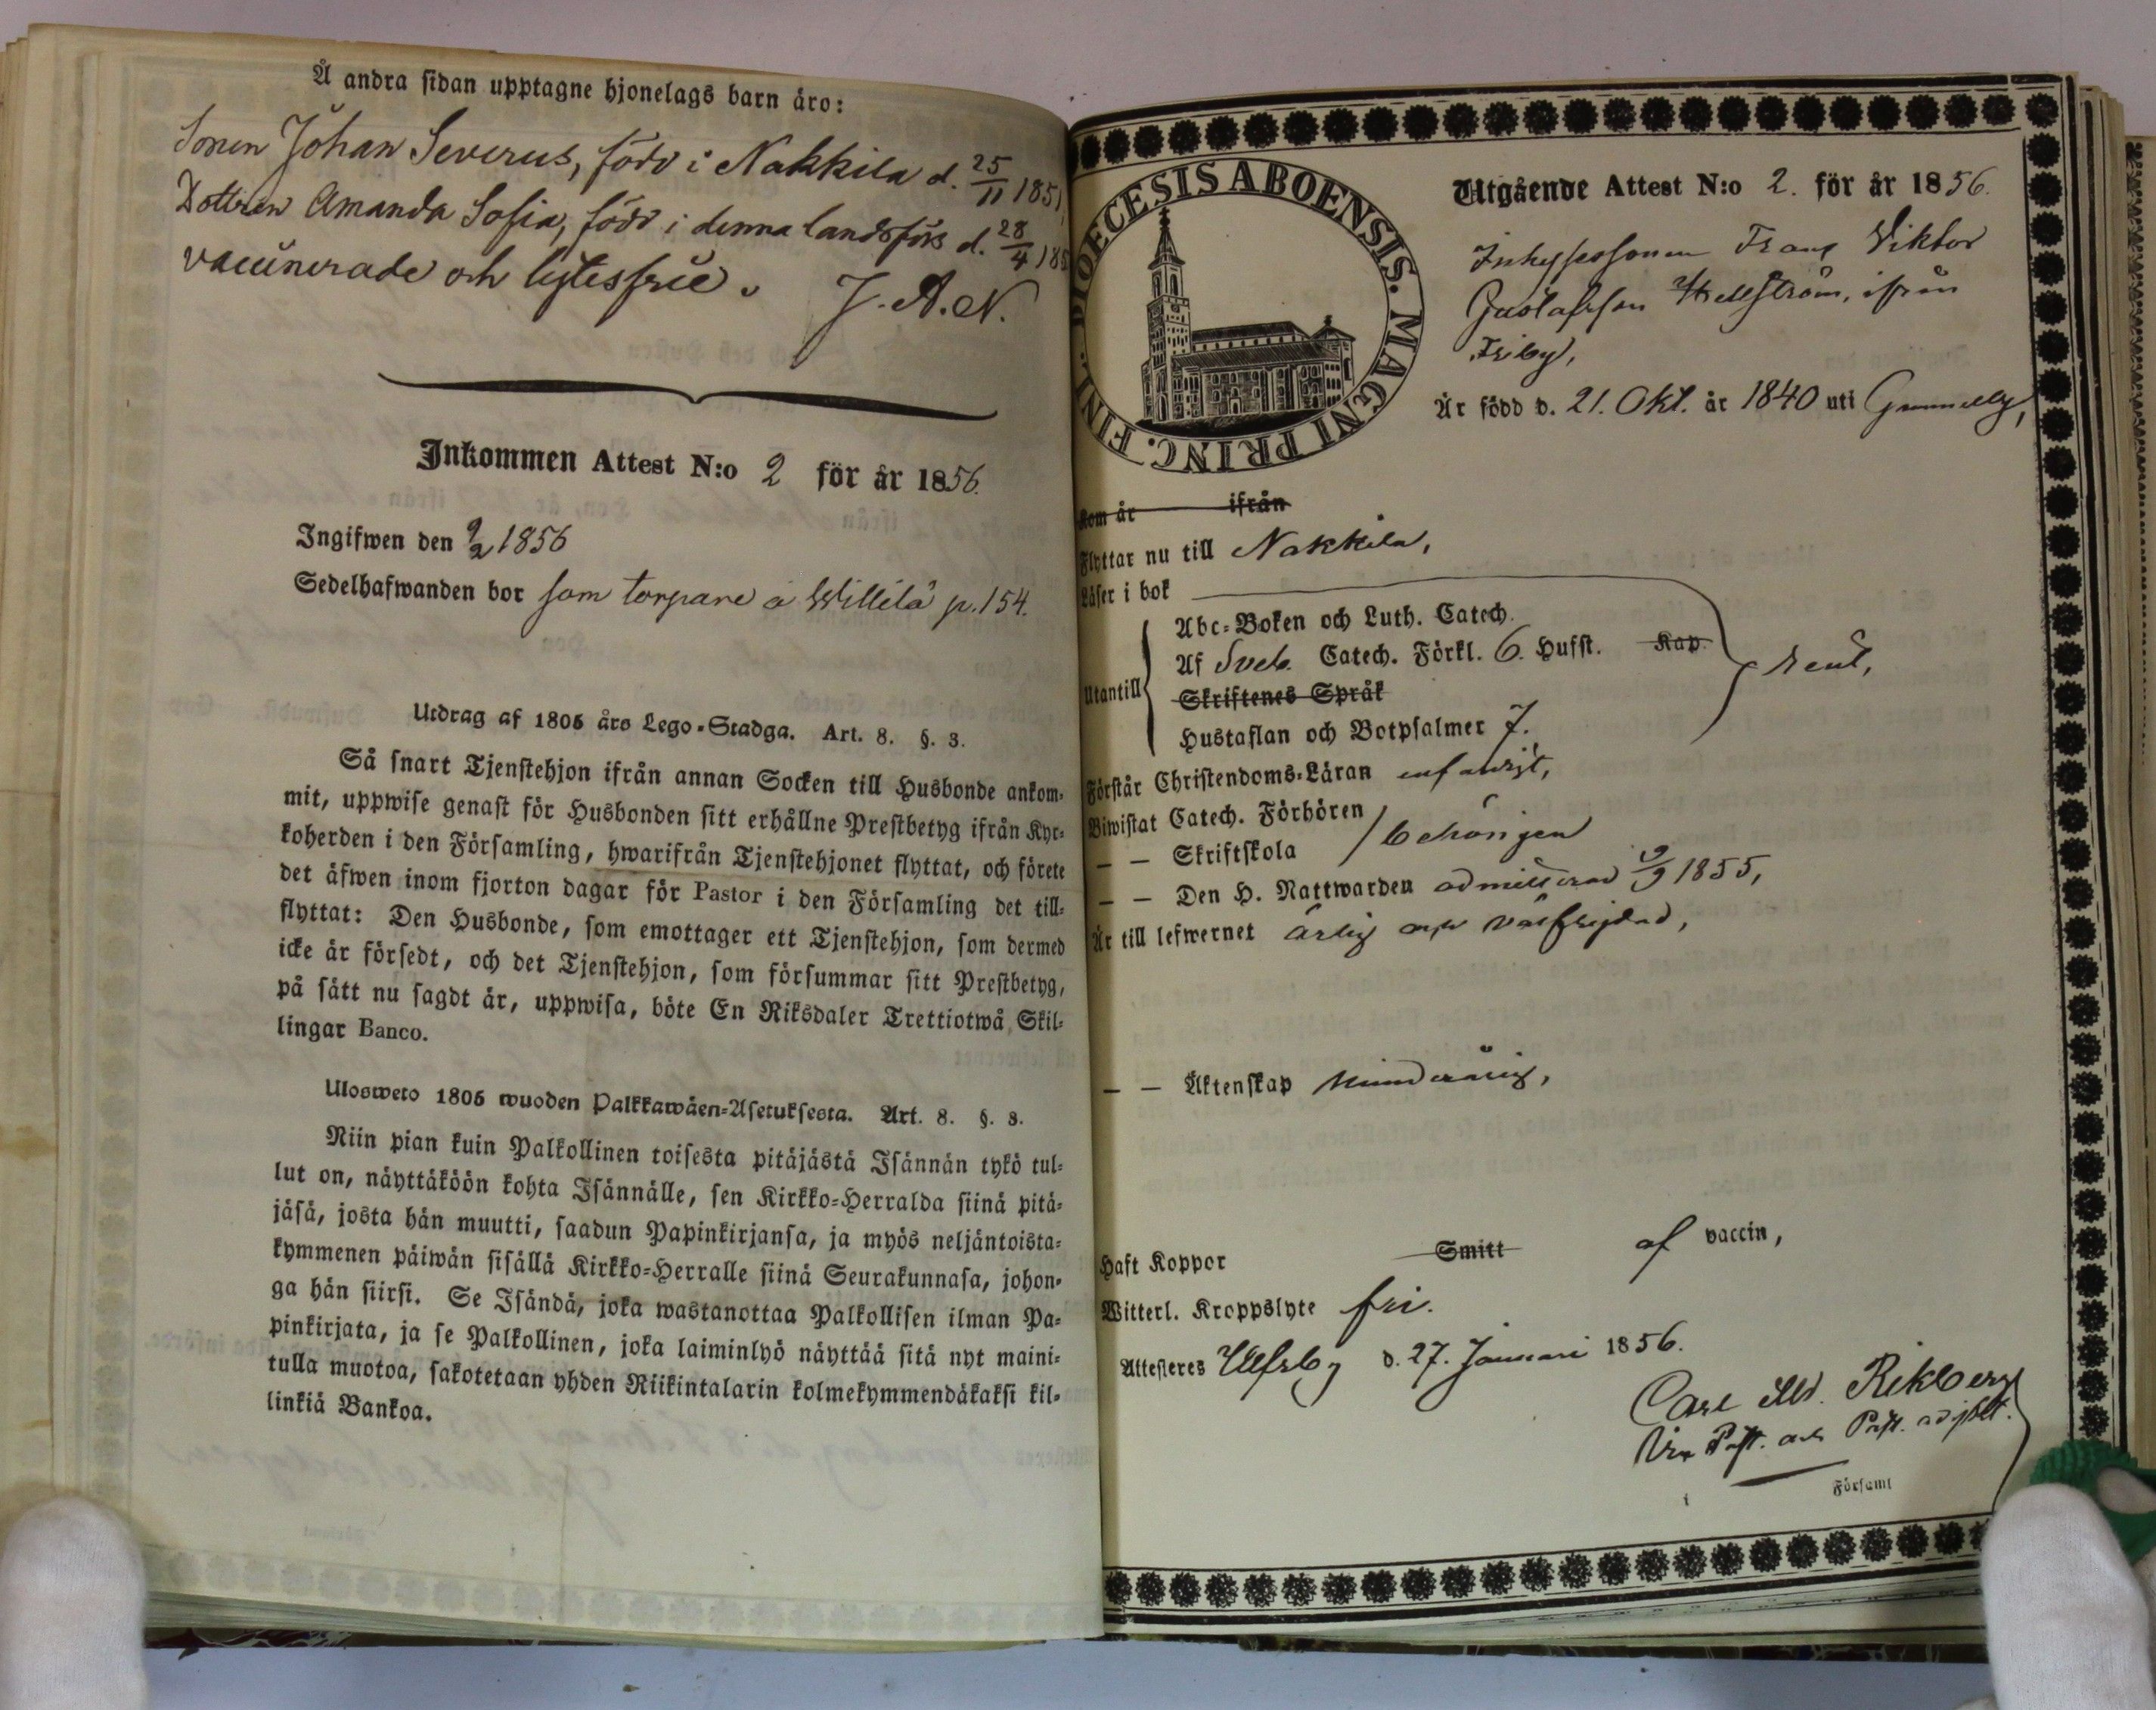 Å andra sidan upptagne hjonelags barn äro:
Sonen Johan Severus, född i Nakkila d. 25/11 1851,
Dottren Amanda Sofia, född i denna landsförs d. 28/4 185
vaccinerade och lytesfrie.
J. A. N.
Inkommen Attest N:o 2 för år 1856.
Ingifwen den 9/2 1856
Sedelhafwanden bor som torpare å Willilä p. 154.
Utdrag af 1805 års Lego-Stadga. Art. 8. §. 3.
Så snart Tjenstehjon ifrån annan Socken till Husbonde ankom-
mit, uppwise genast för Husbonden sitt erhållne Prestbetyg ifrån Kyr-
koherden i den Församling, hwarifrån Tjenstehjonet flyttat, och förete
det äfwen inom fjorton dagar för Pastor i den Församling det till-
flyttat: Den Husbonde, som emottager ett Tjenstehjon, som dermed
icke är försedt, och det Tjenstehjon, som försummar sitt Prestbetyg,
på sätt nu sagdt är, uppwisa, böte En Riksdaler Trettiotwå Skil-
lingar Banco.
Ulosweto 1805 wuoden Palkkawäen-Asetuksesta. Art. 8. §. 3.
Niin pian kuin Palkollinen toisesta pitäjästä Isännän tykö tul-
lut on, näyttäköön kohta Isännälle, sen Kirkko-Herralda siinä pitä-
jäsä, josta hän muutti, saadun Papinkirjansa, ja myös neljäntoista-
kymmenen päiwän sisällä Kirkko-Herralle siinä Seurakunnasa, johon-
ga hän siirsi. Se Isändä, joka wastanottaa Palkollisen ilman Pa-
pinkirjata, ja se Palkollinen, joka laiminlyö näyttää sitä nyt maini-
tulla muotoa, sakotetaan yhden Riikintalarin kolmekymmendäkaksi kil-
linkiä Bankoa.
DIOECESIS ABOENSIS. MAGNI PRINC. FINL.
Utgående Attest N:o 2. för år 1856.
Inhyssesonen Frans Viktor
Gustafsson Hellström, ifrån
Friby,
Är född d. 21. Okt. år 1840 uti
Kom år ifrån
Flyttar nu till Nakkila,
Läser i bok
Utantill
Abc-Boken och Luth. Catech.
Af Sveb. Catech. Förkl. 6. Hufst. Kap.
Skriftenes Språk
Hustaflan och Botpsalmer 7.
rent,
Förstår Christendoms-Läran enfaldigt,
Biwistat Catech. Förhören
— — Skriftskola behörigen
— — Den H. Nattwarden admitterad 9/9 1855,
Är till lefwernet ärlig och välfrejdad,
— — Äktenskap minderårig,
Haft Koppor Smitt af vaccin,
Witterl. Kroppslyte fri.
Attesteres Ulfsby d. 27. Januari 1856.
Carl Rikberg
Vice Past. och Past. adjukt.
i Församl